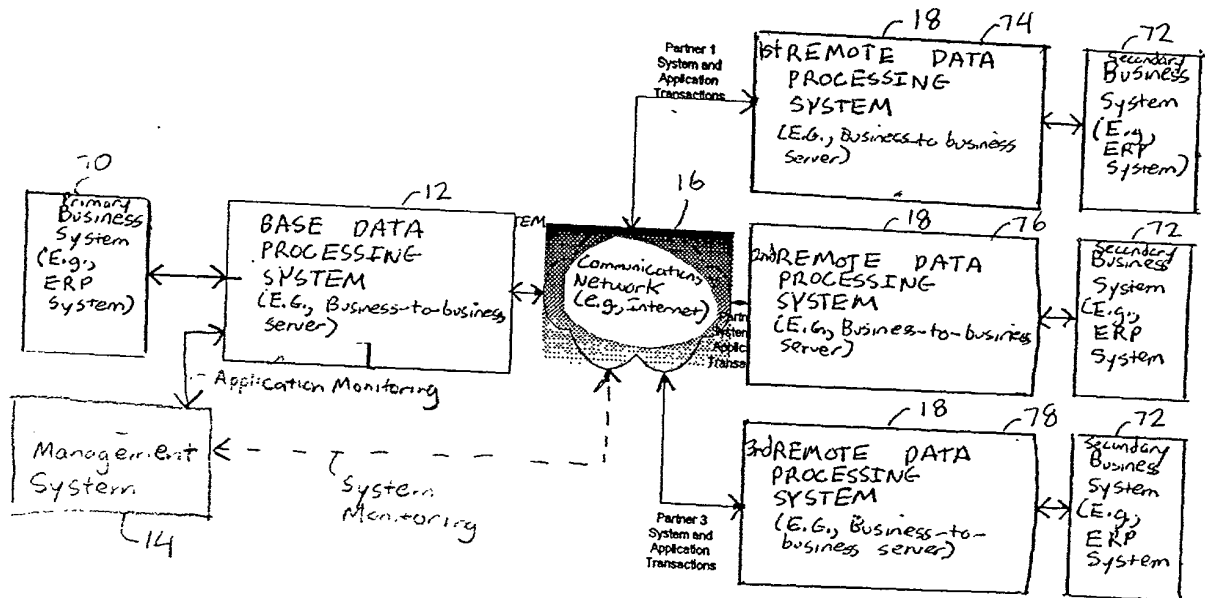 70
Primary
Business
System
(E.g.,
ERP
System)
12
BASE DATA
PROCESSING
SYSTEM
(E.G., Business-to-business
server)
TEM
Application Monitoring
Management
System
14
System
Monitoring
16
Communications
Network
(e.g., Internet)
Partner 1
System and
Application
Transactions
18
74
1st REMOTE DATA
PROCESSING
SYSTEM
(E.G., Business-to business
server)
72
Secondary
Business
System
(E.g.,
ERP
System)
18
76
2nd REMOTE DATA
PROCESSING
SYSTEM
(E.G., Business-to-business
server)
72
Secondary
Business
System
(E.g.,
ERP
System
18
78
3rd REMOTE DATA
PROCESSING
SYSTEM
(E.G., Business-to-
business server)
Partner 3
System and
Application
Transactions
72
Secondary
Business
System
(E.g.,
ERP
System